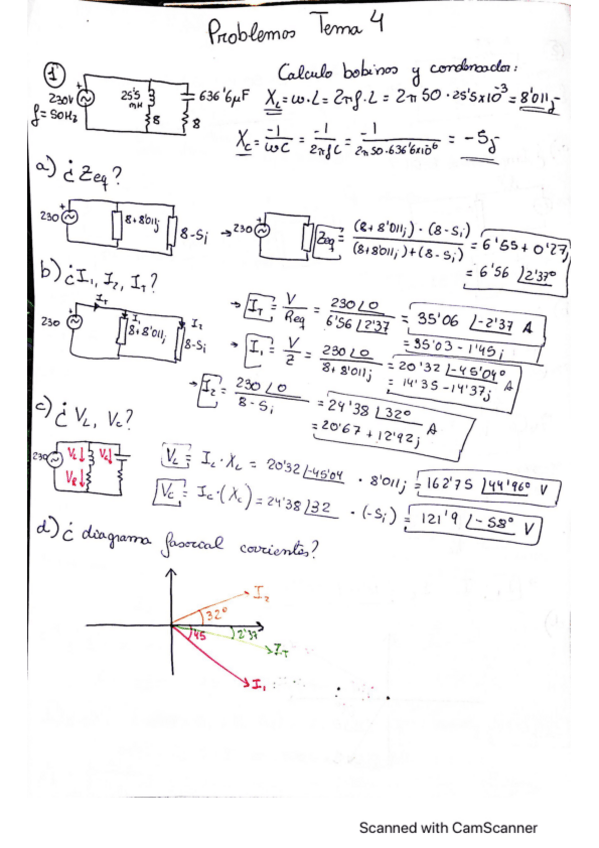 Problemas Tema 4
1
230V
f=50Hz
25'5 mH
8
636'6μF
8
Calculo bobinas y condensador:
X_L = ω·L = 2πf·L = 2π50·25'5x10^-3 = 8'011j
X_C = -1/ωC = -1/2πfC = -1/2π50·636'6x10^6 = -5j
a) ¿Zeq?
230 8+8'011j 8-5j → 230 Zeq = (8+8'011j)·(8-5j)/(8+8'011j)+(8-5j) = 6'55+0'27j
= 6'56 ∠2'37º
b) ¿I1, I2, IT?
IT I1 I2
230 8+8'011j 8-5j
→ IT = V/Req = 230∠0/6'56∠2'37 = 35'06 ∠-2'37 A
= 35'03-1'45j
→ I1 = V/Z = 230∠0/8+8'011j = 20'32 ∠-45'04º A
= 14'35-14'37j
→ I2 = 230∠0/8-5j = 24'38 ∠32º A
= 20'67+12'92j
c) ¿VL, Vc?
230 VL↓ Vc↓
VR↓
VL = IL·XL = 20'32∠-45'04 · 8'011j = 162'75 ∠44'96º V
Vc = Ic·(Xc) = 24'38∠32 · (-5j) = 121'9 ∠-58º V
d) ¿ diagrama fasorial corrientes?
I2
32º
45
2'37
IT
I1
Scanned with CamScanner